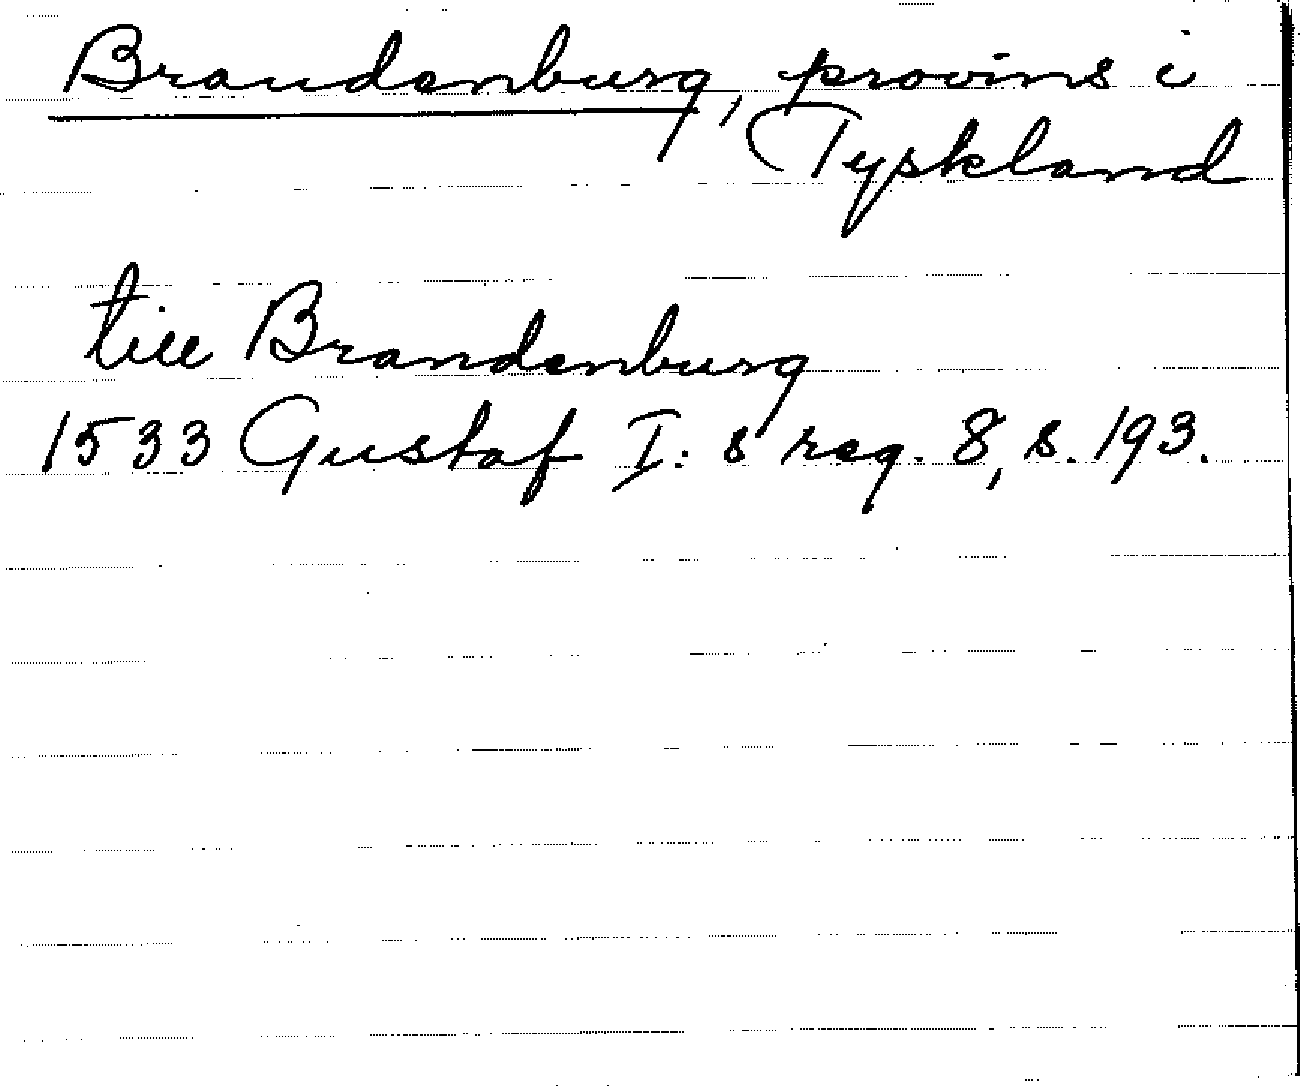 Brandenburg, provins i
Tyskland
till Brandenburg
1533 Gustaf I:s reg. 8, s. 193.